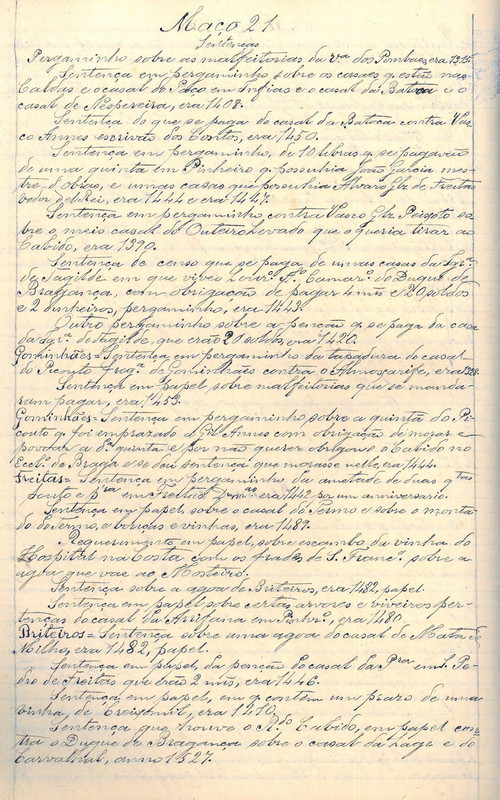 Maço 21
Sentenças
Pergaminho sobre as malfeitorias da va dos Pombaes, era 1315
Sentença em pergaminho sobre os casaes q. estão nas
Caldas e o casal do Paço em Infias e o casal da Batoca e o
casal de Nespereira, era 1408.
Sentença do que se paga do casal da Batoca contra Vas-
co Annes escrivão dos Contos, era 1450.
Sentença em pergaminho, de 10 libras q. se pagavão
de uma quinta em Pinheiro q. possuhia João Garcia mes-
tre d'obras, e umas casas que possuhia Alvaro Glz. de Freitas
vedor del Rei, era 1444 e era 1447.
Sentença em pergaminho, contra Vasco Glz. Peixoto so-
bre o meio casal do Outeiro Levado que o queria tirar ao
Cabido, era 1370.
Sentença de censo que se paga de umas casas da
de Tagilde em que viveu Lour.º Camar.º do Duque de
Bragança, com obrigação de pagar 4 mrs e 20 soldos
e 2 dinheiros, pergaminho, era 1443.
Outro pergaminho sobre a penção q. se paga da casa
da de Tagilde, que erão 20 soldos, era 1420.
Gominhães = Sentença em pergaminho da tapadura do casal
do Picouto freg.ª de Gominhães contra o Almoxarife, era 1328.
Sentença em papel sobre malfeitorias que se manda-
ram pagar, era 1453.
Gominhães = Sentença em pergaminho, sobre a quinta do Pi-
couto q. foi emprazado a Gil Annes com obrigação de morar e
povoar a D.ª quinta e por não querer obrigou-o o Cabido no
Eccl.º de Braga e se deu sentença que morasse nella, era 1444.
Freitas = Sentença em pergaminho da ametade de duas qtas
Souto e pra em Freitas era 1442 por um anniversario.
Sentença em papel, sobre o casal do Termo e sobre o monta-
do do Termo, e bouças e vinhas, era 1487.
Requerimento em papel, sobre escambo da vinha do
Hospital na Costa com os frades de S. Franc.º sobre a
agoa que vae ao Mosteiro.
Sentença sobre a agoa de Briteiros, era 1482, papel.
Sentença em papel sobre certas arvores e viveiros per-
tenças do casal da Arrifana em Pinhr.º, era 1480
Briteiros = Sentença sobre uma agoa do casal de Mata de
Milho, era 1482, papel.
Sentença em papel, da penção do casal da Pra em S. Pe-
dro de Freitas que erão 2 mrs, era 1446.
Sentença, em papel, em q. contém um prazo de uma
vinha, de Creixomil, era 1410.
Sentença que houve o Rdo Cabido, em papel con-
tra o Duque de Bragança sobre o casal da Lage e do
Carvalhal, anno 1527.